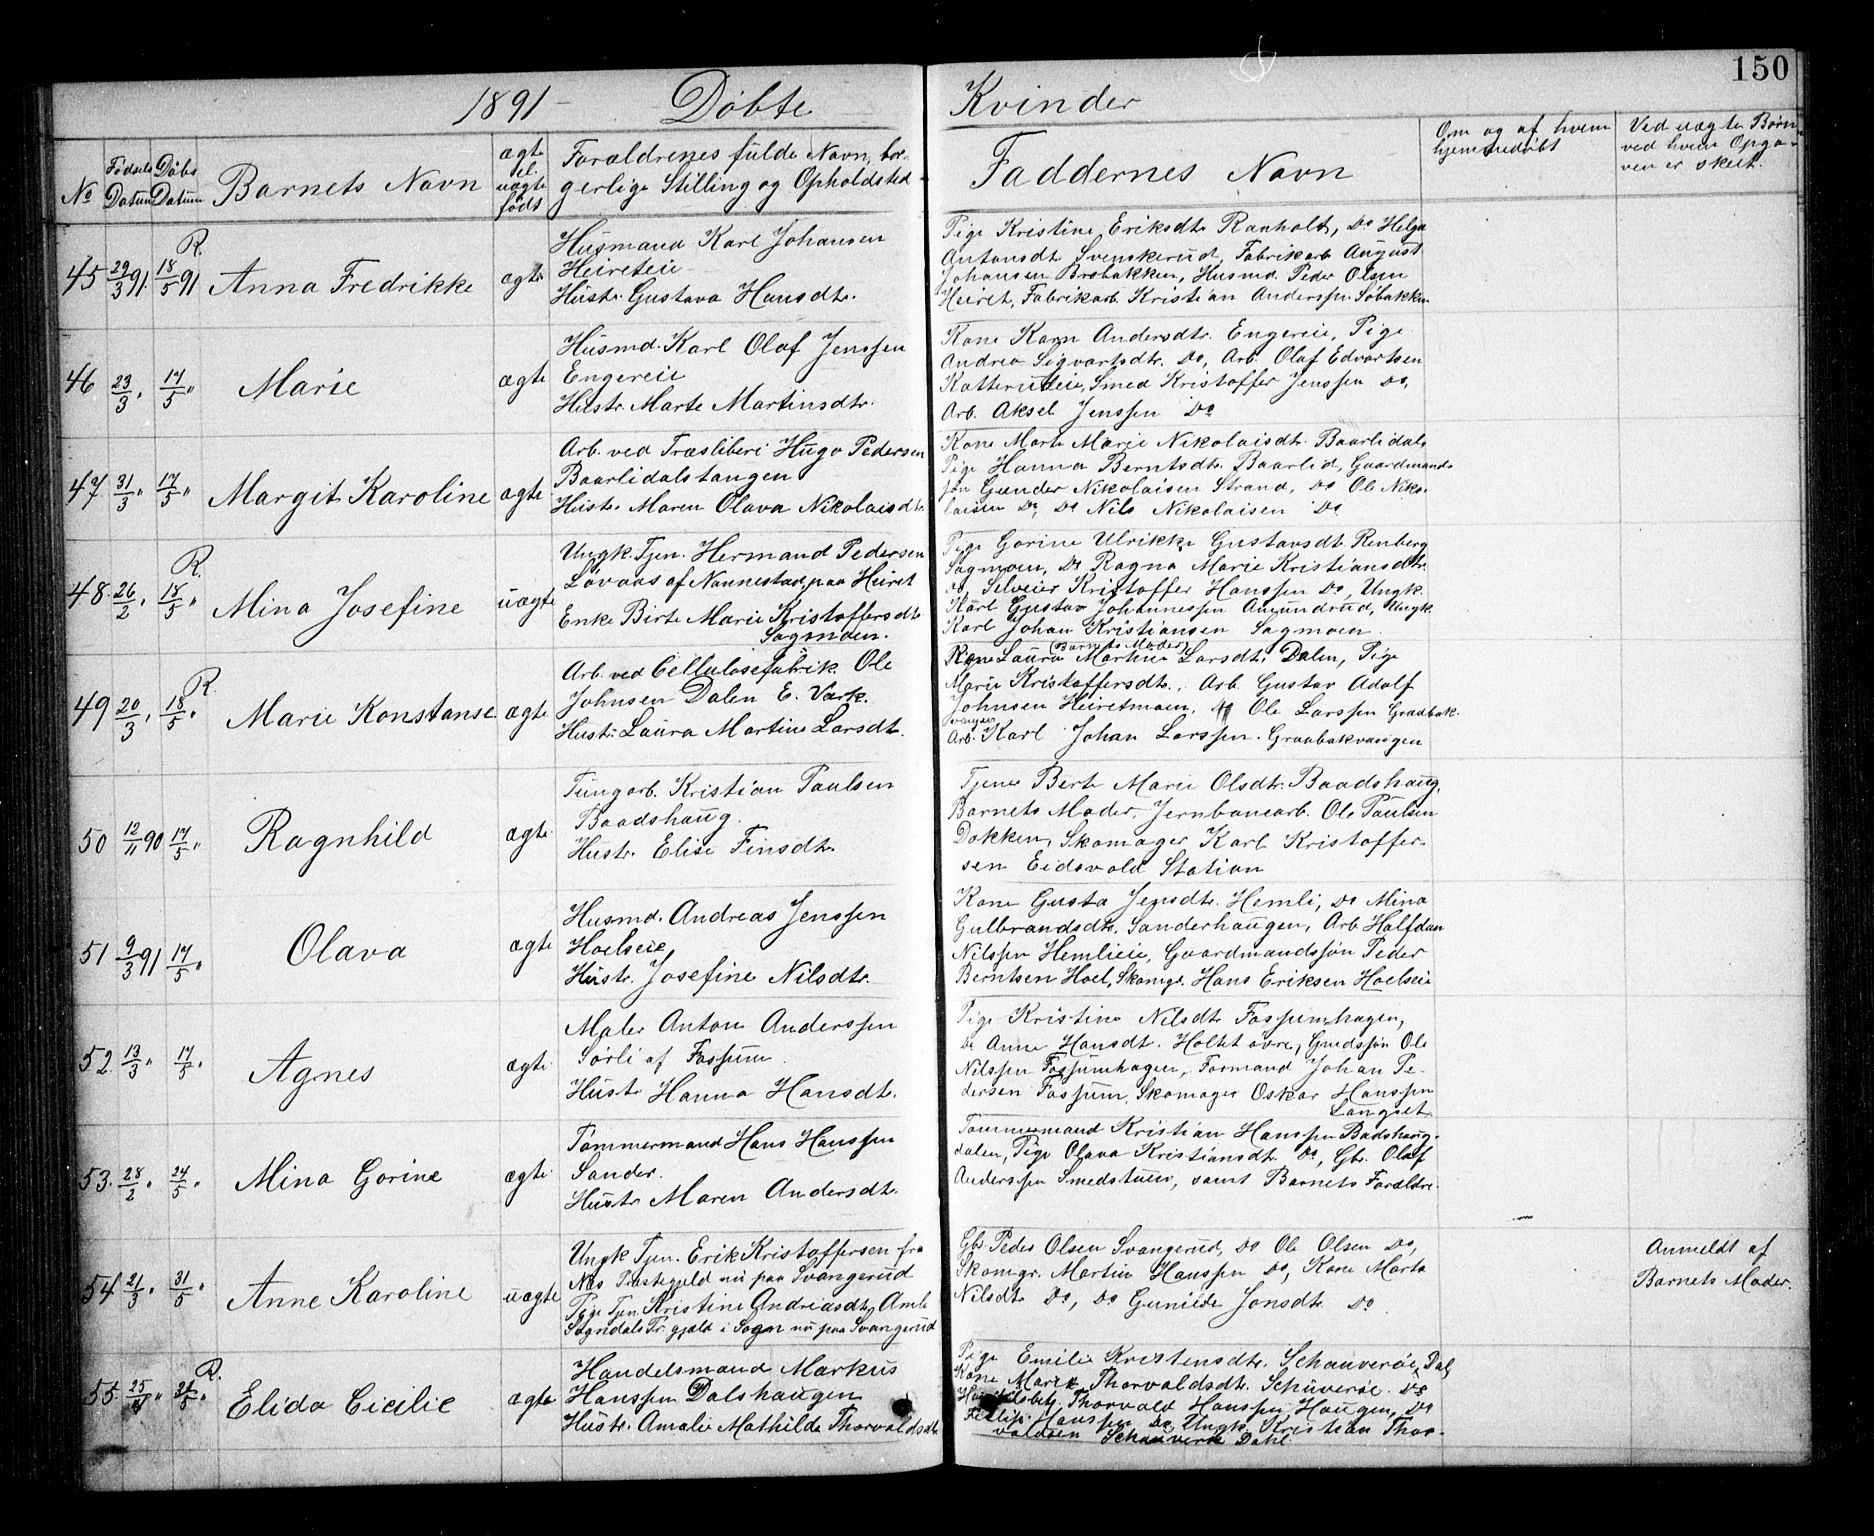 150
1891 - Døbte Kvinder
No
Fødsels Datum
Døbs Datum
Barnets Navn
ægte el. uægte født
Forældrenes fulde Navn, bor-
gerlige Stilling og Opholdsted
Faddernes Navn
Om og af hvem
hjemmedøbt
Ved uægte Børn
ved hvem Opga-
ven er skeet.
45 29/3 91. R. 18/5 91 Anna Fredrikke ægte
Husmand Karl Johansen
Heireteie
Hustr. Gustava Hansdtr.
Pige Kristine Eriksdtr. Ranholt, Do Helga
Antonsdt. Svenskerud, Fabrikarb. August
Johansen Brobakken, Husmd. Peder Olsen
Heiret, Fabrikarb. Kristian Anderssen Søbakken
46 23/3 " 17/5 " Marie ægte
Husmd. Karl Olaf Jenssen
Engereie
Hustr. Marte Martinsdtr.
Kone Karn Andersdtr. Engereie, Pige
Andrea Sigvartsdtr. Do, Arb. Olaf Edvartsen
Katterudeie, Smed Kristoffer Jenssen Do,
Arb. Aksel Jenssen Do
47 31/3 " 17/5 " Margit Karoline ægte
Arb. ved Træsliberi Hugo Pedersen
Baarlidalstangen
Hustr. Maren Olava Nikolaisdtr.
Kone Marte Marie Nikolaisdtr. Baarlidals
Pige Hanna Berntsdtr. Baarlid, Gaardmands-
søn Gunder Nikolaisen Strand, Do Ole Niko-
laisen Do, Do Nils Nikolaisen Do
48. 26/2 " R. 18/5 " Mina Josefine uægte
Ungk. Tjen. Hermand Pedersen
Løvaas af Nannestad, paa Heiret
Enke Birte Marie Kristoffersdtr
Sagmoen.
Pige Gorine Ulrikke Gustavsdt. Renberg
Sagmoen, Do Ragna Marie Kristiansdtr.
Do, Selveier Kristoffer Hanssen Do, Ungk.
Karl Gustav Johannessen Amundrud, Ungk.
Karl Johan Kristiansen Sagmoen
49 20/3 " R. 18/5 " Marie Konstanse ægte
Arb. ved Cellulosefabrik. Ole
Johnsen Dalen E. Værk.
Hustr. Laura Martine Larsdtr.
(Barnets Moder)
Kone Laura Martine Larsdtr. Dalen, Pige
Marie Kristoffersdtr., Arb. Gustav Adolf
Johnsen Heiretmoen, Ole Larssen Graabak-
vangen
Arb. Karl Johan Larssen. Graabakvangen
50 12/11 90 17/5 " Ragnhild ægte
Kristian Paulsen
Baadshaug.
Hustr. Elise Finsdtr.
Tjener Berte Marie Olsdtr. Baadshaug,
Barnets Moder, Jernbanearb. Ole Paulsen
Dokken, Skomager Karl Kristoffer-
sen Eidsvold Station
51 9/3 91 17/5 " Olava ægte
Husmd. Andreas Jenssen
Hoelseie
Hustr. Josefine Nilsdtr.
Kone Gusta Jensdtr. Hemli, Do Mina
Gulbrandsdtr. Sanderhaugen, Arb. Halfdan
Nilssen Hemlieie, Gaardmandssøn Peder
Berntsen Hoel, Skomgr. Hans Eriksen Hoelseie
52. 13/3 " 17/5 " Agnes ægte
Maler Anton Anderssen
Sørli af Fossum
Hustr. Hanna Hansdtr.
Pige Kristine Nilsdtr Fossumhagen,
Do Anne Hansdt. Holtet øvre, Grdssøn Ole
Nilssen Fossumhagen, Formand Johan Pe-
dersen Fossum, Skomager Oskar Hanssen
Langset
53. 28/2 " 24/5 " Mina Gorine ægte
Tømmermand Hans Hanssen
Sander.
Hustr. Maren Andersdtr.
Tømmermand Kristian Hanssen Badshaug-
dalen, Pige Olava Kristiansdt. Do, Gbr. Olaf
Anderssen Smedstuen, samt Barnets Forældre.
54 21/3 " 31/5 " Anne Karoline uægte
Ungk. Tjen. Erik Kristoffersen fra
Nes Prestegjeld nu paa Svangerud
Pige Tjen. Kristine Andreasdtr. Amle
Sogndals Pr.gjeld i Sogn nu paa Svangerud
Gbr. Peder Olsen Svangerud, Do Ole Olsen Do,
Skomgr. Martin Hanssen Do, Kone Marte
Nilsdtr. Do, Do Gunilde Jonsdtr. Do.
Anmeldt af
Barnets Moder.
55. R. Elida Cicilie ægte
Handelsmand Markus
Hanssen Dalshaugen
Hustr. Amalie Mathilde Thorvaldsdtr.
Pige Emilie Kristensdtr. Dal,
Kone Marie Thorvaldsdtr. Do
Thorvald Hanssen Haugen, Do
Hanssen Do, Ungk. Kristian Thor-
valdsen Dahl.